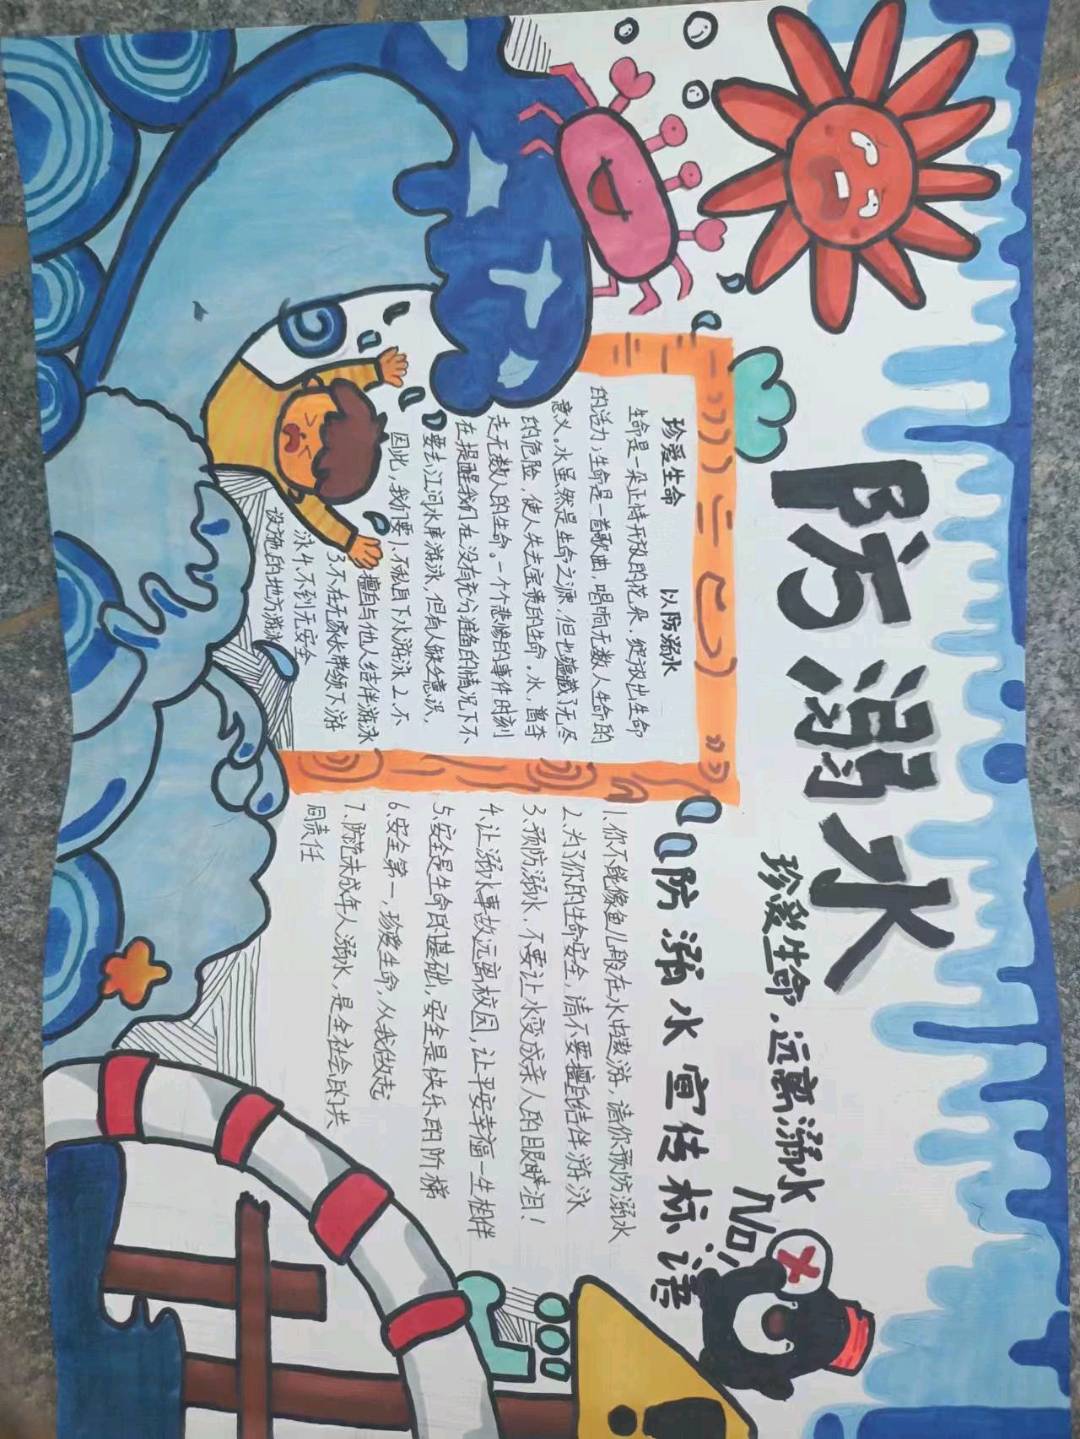 防溺水
珍爱生命，远离溺水
NO!
珍爱生命 以防溺水
生命是一朵正待开放的花朵，绽放出生命
的活力；生命是一首歌曲，唱响无数人生命的
意义。水虽然是生命之源，但也蕴藏了无尽
的危险，使人失去宝贵的生命。水，曾夺
走无数人的生命。一个个悲惨的事件时刻
在提醒我们在没有充分准备的情况下不
要去江河水库游泳，但有人缺乏意识，
因此，我们要1.不私自下水游泳2.不
擅自与他人结伴游泳
3.不在无家长带领下游
泳4.不到无安全
设施的地方游泳
防溺水宣传标语
1.你不能像鱼儿般在水中遨游，请你预防溺水
2.为了你的生命安全，请不要擅自结伴游泳
3.预防溺水，不要让水变成亲人的眼睛泪！
4.让溺水事故远离校园，让平安幸福一生相伴
5.安全是生命的基础，安全是快乐的阶梯
6.安全第一，珍爱生命，从我做起
7.防范未成年人溺水，是全社会的共
同责任